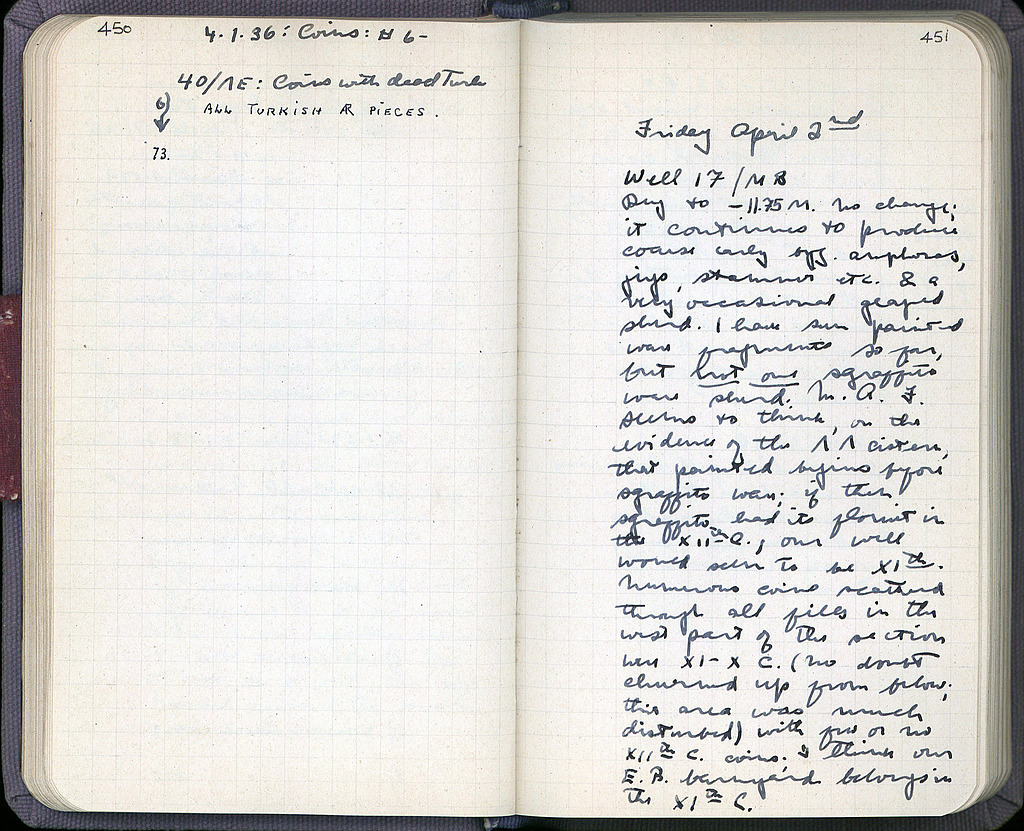 450
4.1.36: Coins: # 6-
40/ΛΕ: Coins with dead Turk
6)
ALL TURKISH AR PIECES.
73.
451
Friday April 2nd
Well 17/MB
Dug to -11.75 M. No change;
it continues to produce
coarse early byz. amphoras,
jugs, stamnoi etc. & a
very occasional glazed
sherd. I have seen painted
ware fragments so far,
but not one sgraffito
ware sherd. M. A. F.
seems to think, on the
evidence of the ΛΛ cistern,
that painted begins before
sgraffito ware; if then
sgraffito had its floruit in
the XIIth C., our well
would seem to be XIth.
Numerous coins scattered
through all fills in the
west part of the section
were XI-X C. (no doubt
churned up from below;
this area was much
disturbed) with few or no
XIIth C. coins. I think our
E. B. barnyard belongs in
the XIth C.